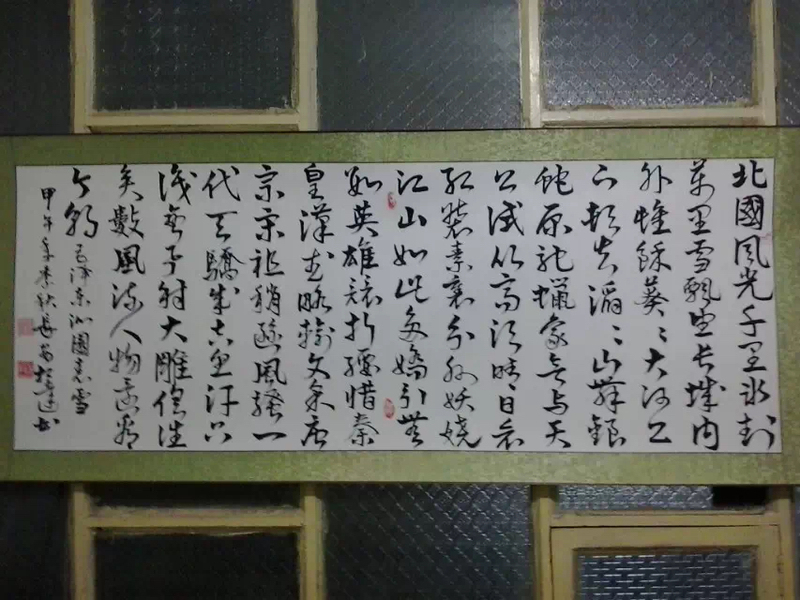 北國风光千里冰封
萬里雪飘望长城内
外惟餘莽〻大河上
下頓失滔〻山舞銀
蛇原馳蠟象欲与天
公试比高须晴日看
红装素裹分外妖娆
江山如此多嬌引無
数英雄競折腰惜秦
皇漢武略输文采唐
宗宋祖稍遜風騷一
代天驕成吉思汗只
识弯弓射大雕俱往
矣數風流人物還看
今朝
毛泽东沁園春雪
甲午年季秋長安 書